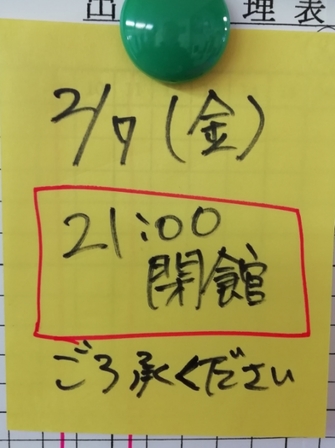 出 理表
2/7(金)
21:00
閉館
ご了承ください